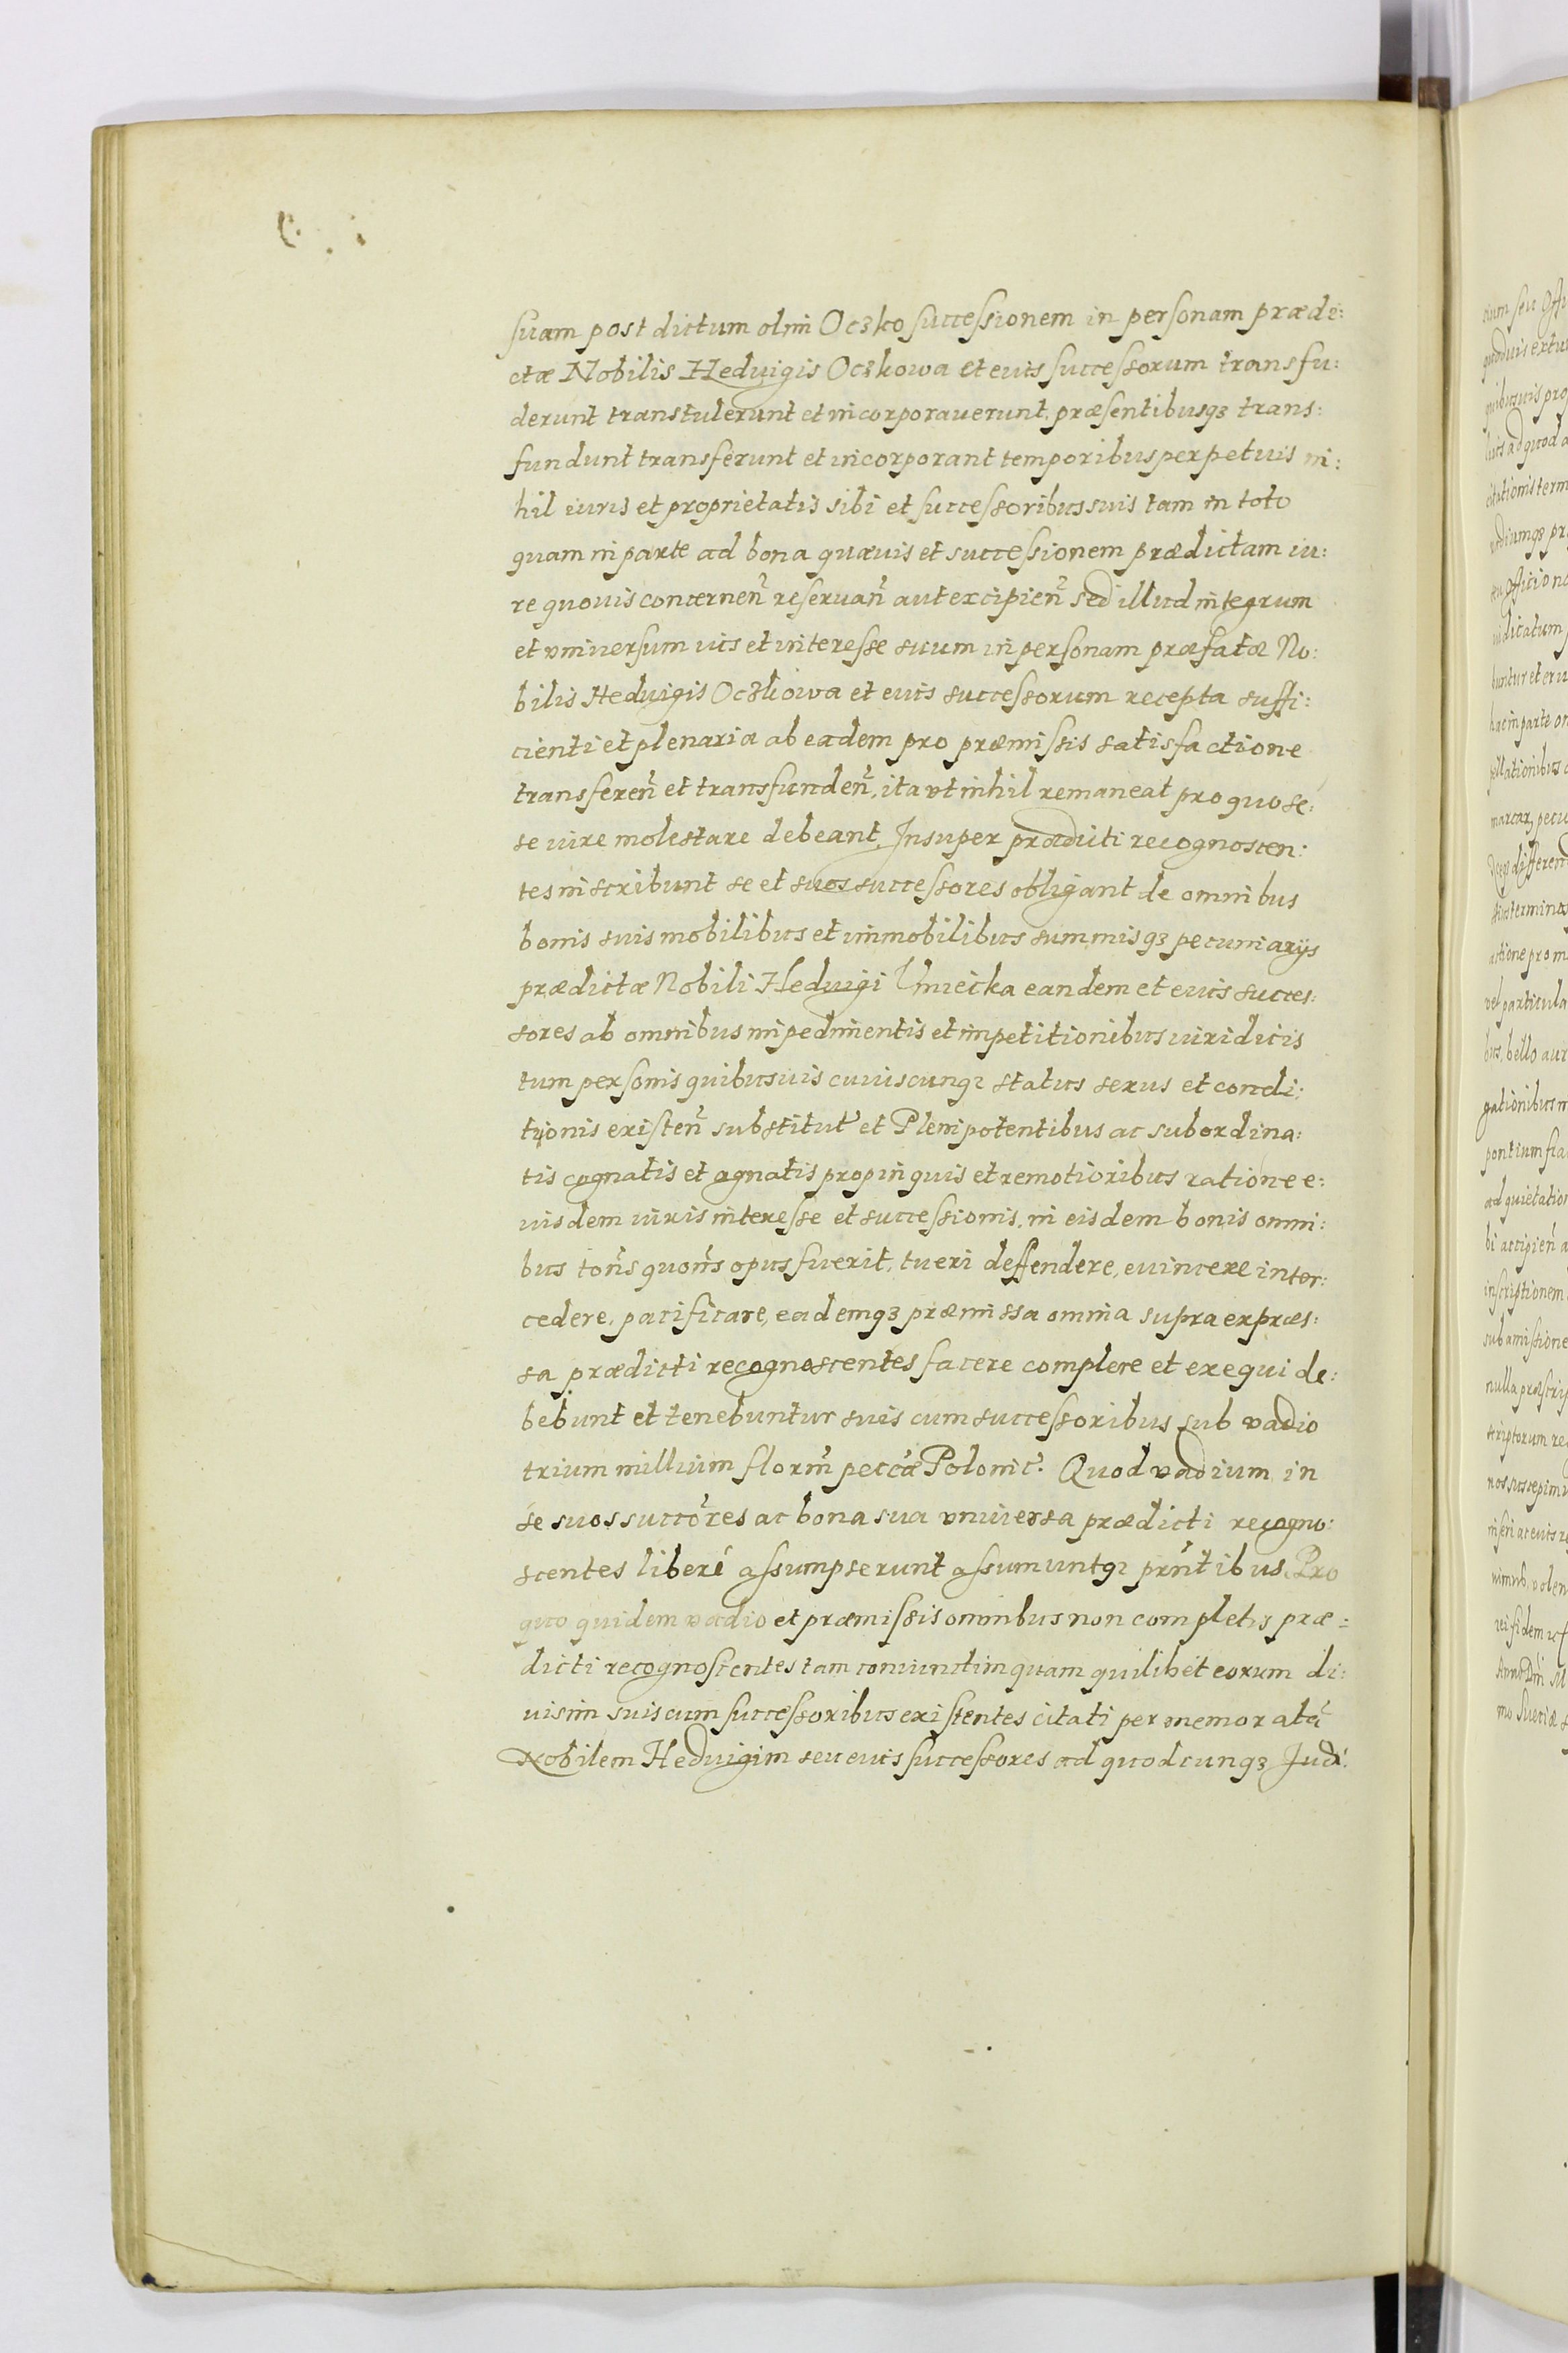 suam post dictum olim Oczko successionem in personam prædi:
ctæ Nobilis Hedvigis Oczkowa et eius successorum transfu:
derunt transtulerunt et incorporauerunt, præsentibusqꝫ trans:
fundunt transferunt et incorporant temporibus perpetuis ni:
hil iuris et proprietatis sibi et successoribus suis tam in toto
quam in parte ad bona quævis et successionem prædictam iu:
re quovis concernen̄ reseruan̄ aut excipien̄ sed illud integrum
et vniuersum ius et interesse suum in personam præfatæ No:
bilis Hedvigis Oczkowa et eius successorum recepta suffi:
cienti et plenaria ab eadem pro præmissis satisfactione
transferen̄ et transfunden̄, ita vt nihil remaneat pro quo se:
se iure molestare debeant. Insuper prædicti recognoscen:
tes inscribunt se et suos successores obligant de omnibus
bonis suis mobilibus et immobilibus summisqꝫ pecuniarijs
prædictæ Nobili Hedvigi Vmiecka eandem et eius succes:
sores ab omnibus impedimentis et impetitionibus iuridicis
tum personis quibusuis cuiuscunqꝫ status sexus et condi:
tionis existen̄ substitut̄ et Plenipotentibus ac subordina:
tis cognatis et agnatis propinquis et remotioribus ratione e:
iusdem iuris interesse et successionis, in eisdem bonis omni:
bus ton̄s quon̄s opus fuerit, tueri deffendere, euincere inter:
cedere, pacificare, eademqꝫ præmissa omnia supra expræs:
sa prædicti recognoscentes facere complere et exequi de:
bebunt et tenebuntur suis cum successoribus sub vadio
trium millium florm̄ peccæ Polonic̄. Quod vadium in
se suos succōres ac bona sua vniuersa prædicti recogno:
scentes liberé assumpserunt assumuntqꝫ prn̄tibus. Pro
quo quidem vadio et præmissis omnibus non completis præ:
dicti recognoscentes tam coniunctim quam quilibet eorum di:
uisim suis cum successoribus existentes citati per memoratā
Nobilem Hedvigim seu eius successores ad quodcunqꝫ Judi: